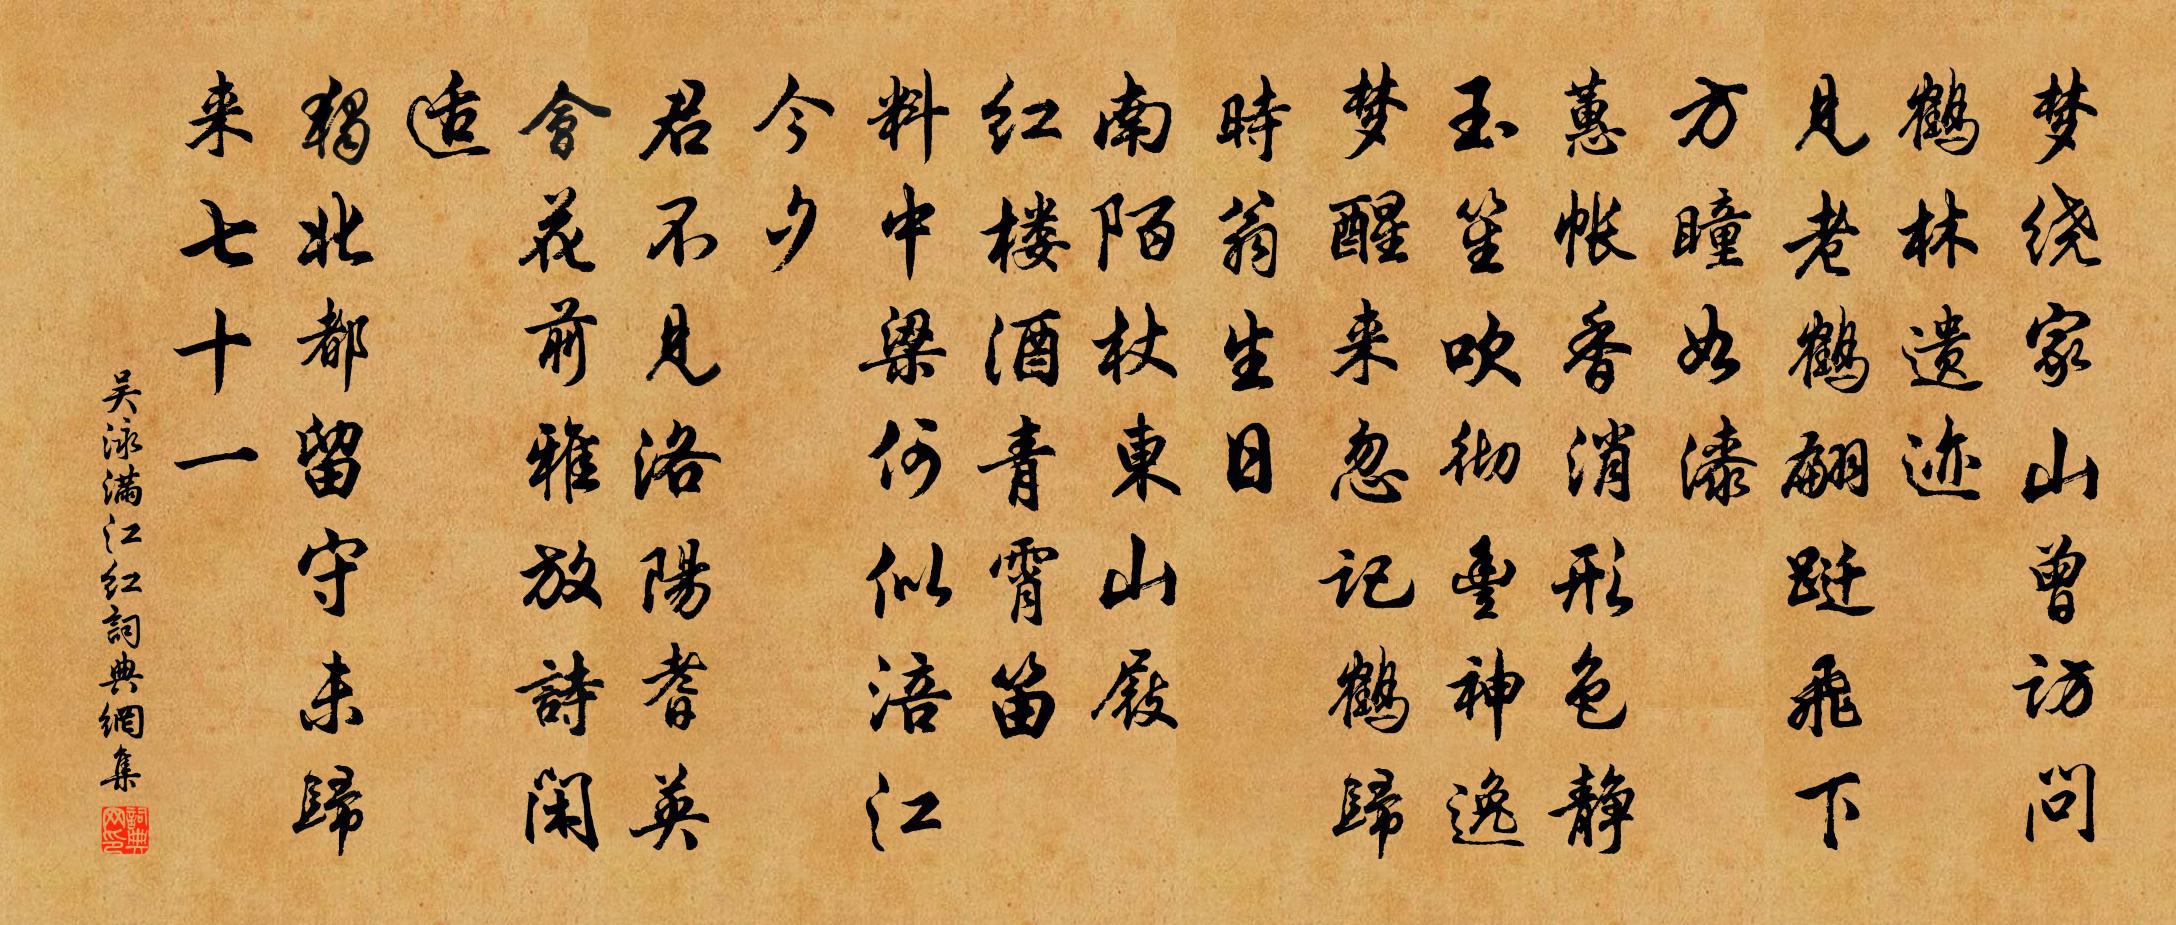 梦绕家山曾访问
鶴林遗迹
见老鶴翩跹飛下
方瞳如漆
蕙帐香消形色静
玉笙吹彻豐神逸
梦醒来忽记鶴歸
時翁生日
南陌杖東山屐
红楼酒青霄笛
料中梁何似涪江
今夕
君不见洛陽耆英
會花前雅放詩闲
适
獨北都留守未歸
来七十一
吴泳满江红詞典網集
詞典网印